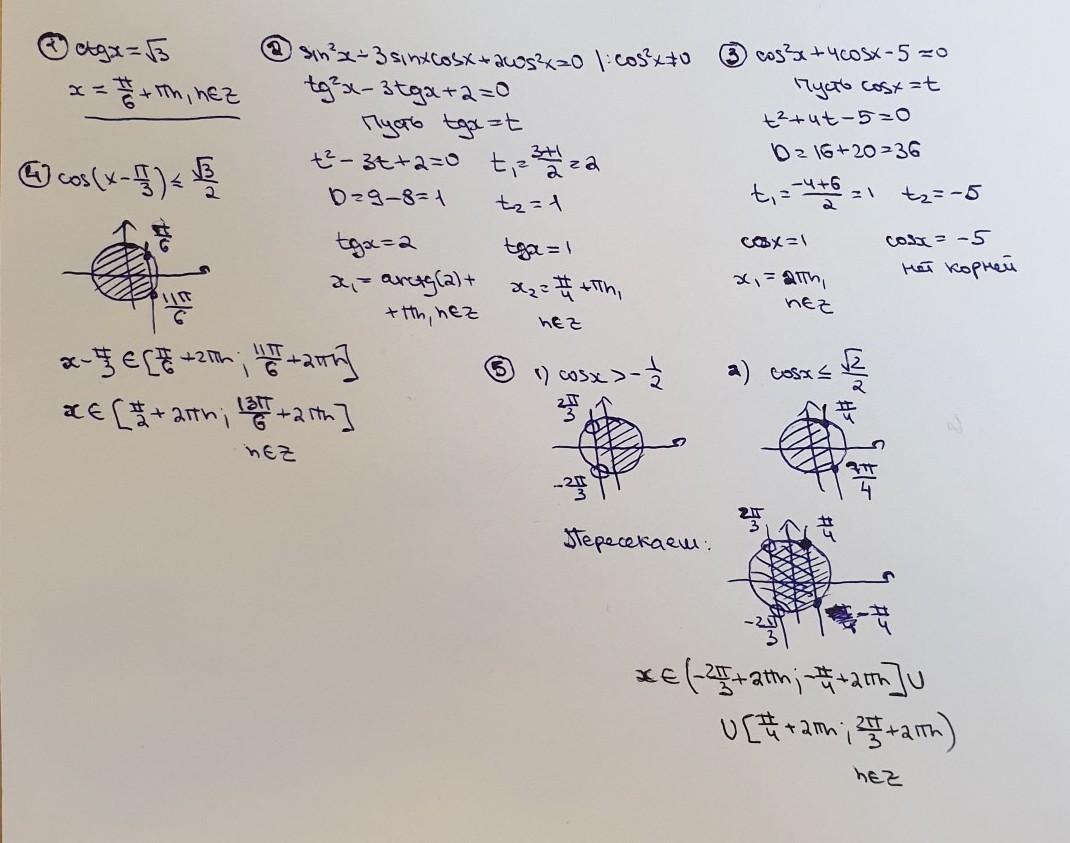 ① ctgx = √3
x = π/6 + πn, n∈Z
② sin²x - 3sinxcosx + 2cos²x = 0 |: cos²x ≠ 0
tg²x - 3tgx + 2 = 0
Пусть tgx = t
t² - 3t + 2 = 0 t₁ = (3+1)/2 = 2
D = 9 - 8 = 1 t₂ = 1
tgx = 2 tgx = 1
x₁ = arctg(2) + x₂ = π/4 + πn,
+ πn, n∈Z n∈Z
③ cos²x + 4cosx - 5 = 0
Пусть cosx = t
t² + 4t - 5 = 0
D = 16 + 20 = 36
t₁ = (-4+6)/2 = 1 t₂ = -5
cosx = 1 cosx = -5
x₁ = 2πn, нет корней
n∈Z
④ cos(x - π/3) ≤ √3/2
π/6
11π/6
x - π/3 ∈ [π/6 + 2πn; 11π/6 + 2πn]
x ∈ [π/2 + 2πn; 13π/6 + 2πn]
n∈Z
⑤ 1) cosx > -1/2 2) cosx ≤ √2/2
2π/3 π/4
-2π/3 7π/4
Пересекаем:
2π/3 π/4
-2π/3 -π/4
x ∈ (-2π/3 + 2πn; -π/4 + 2πn] ∪
∪ [π/4 + 2πn; 2π/3 + 2πn)
n∈Z